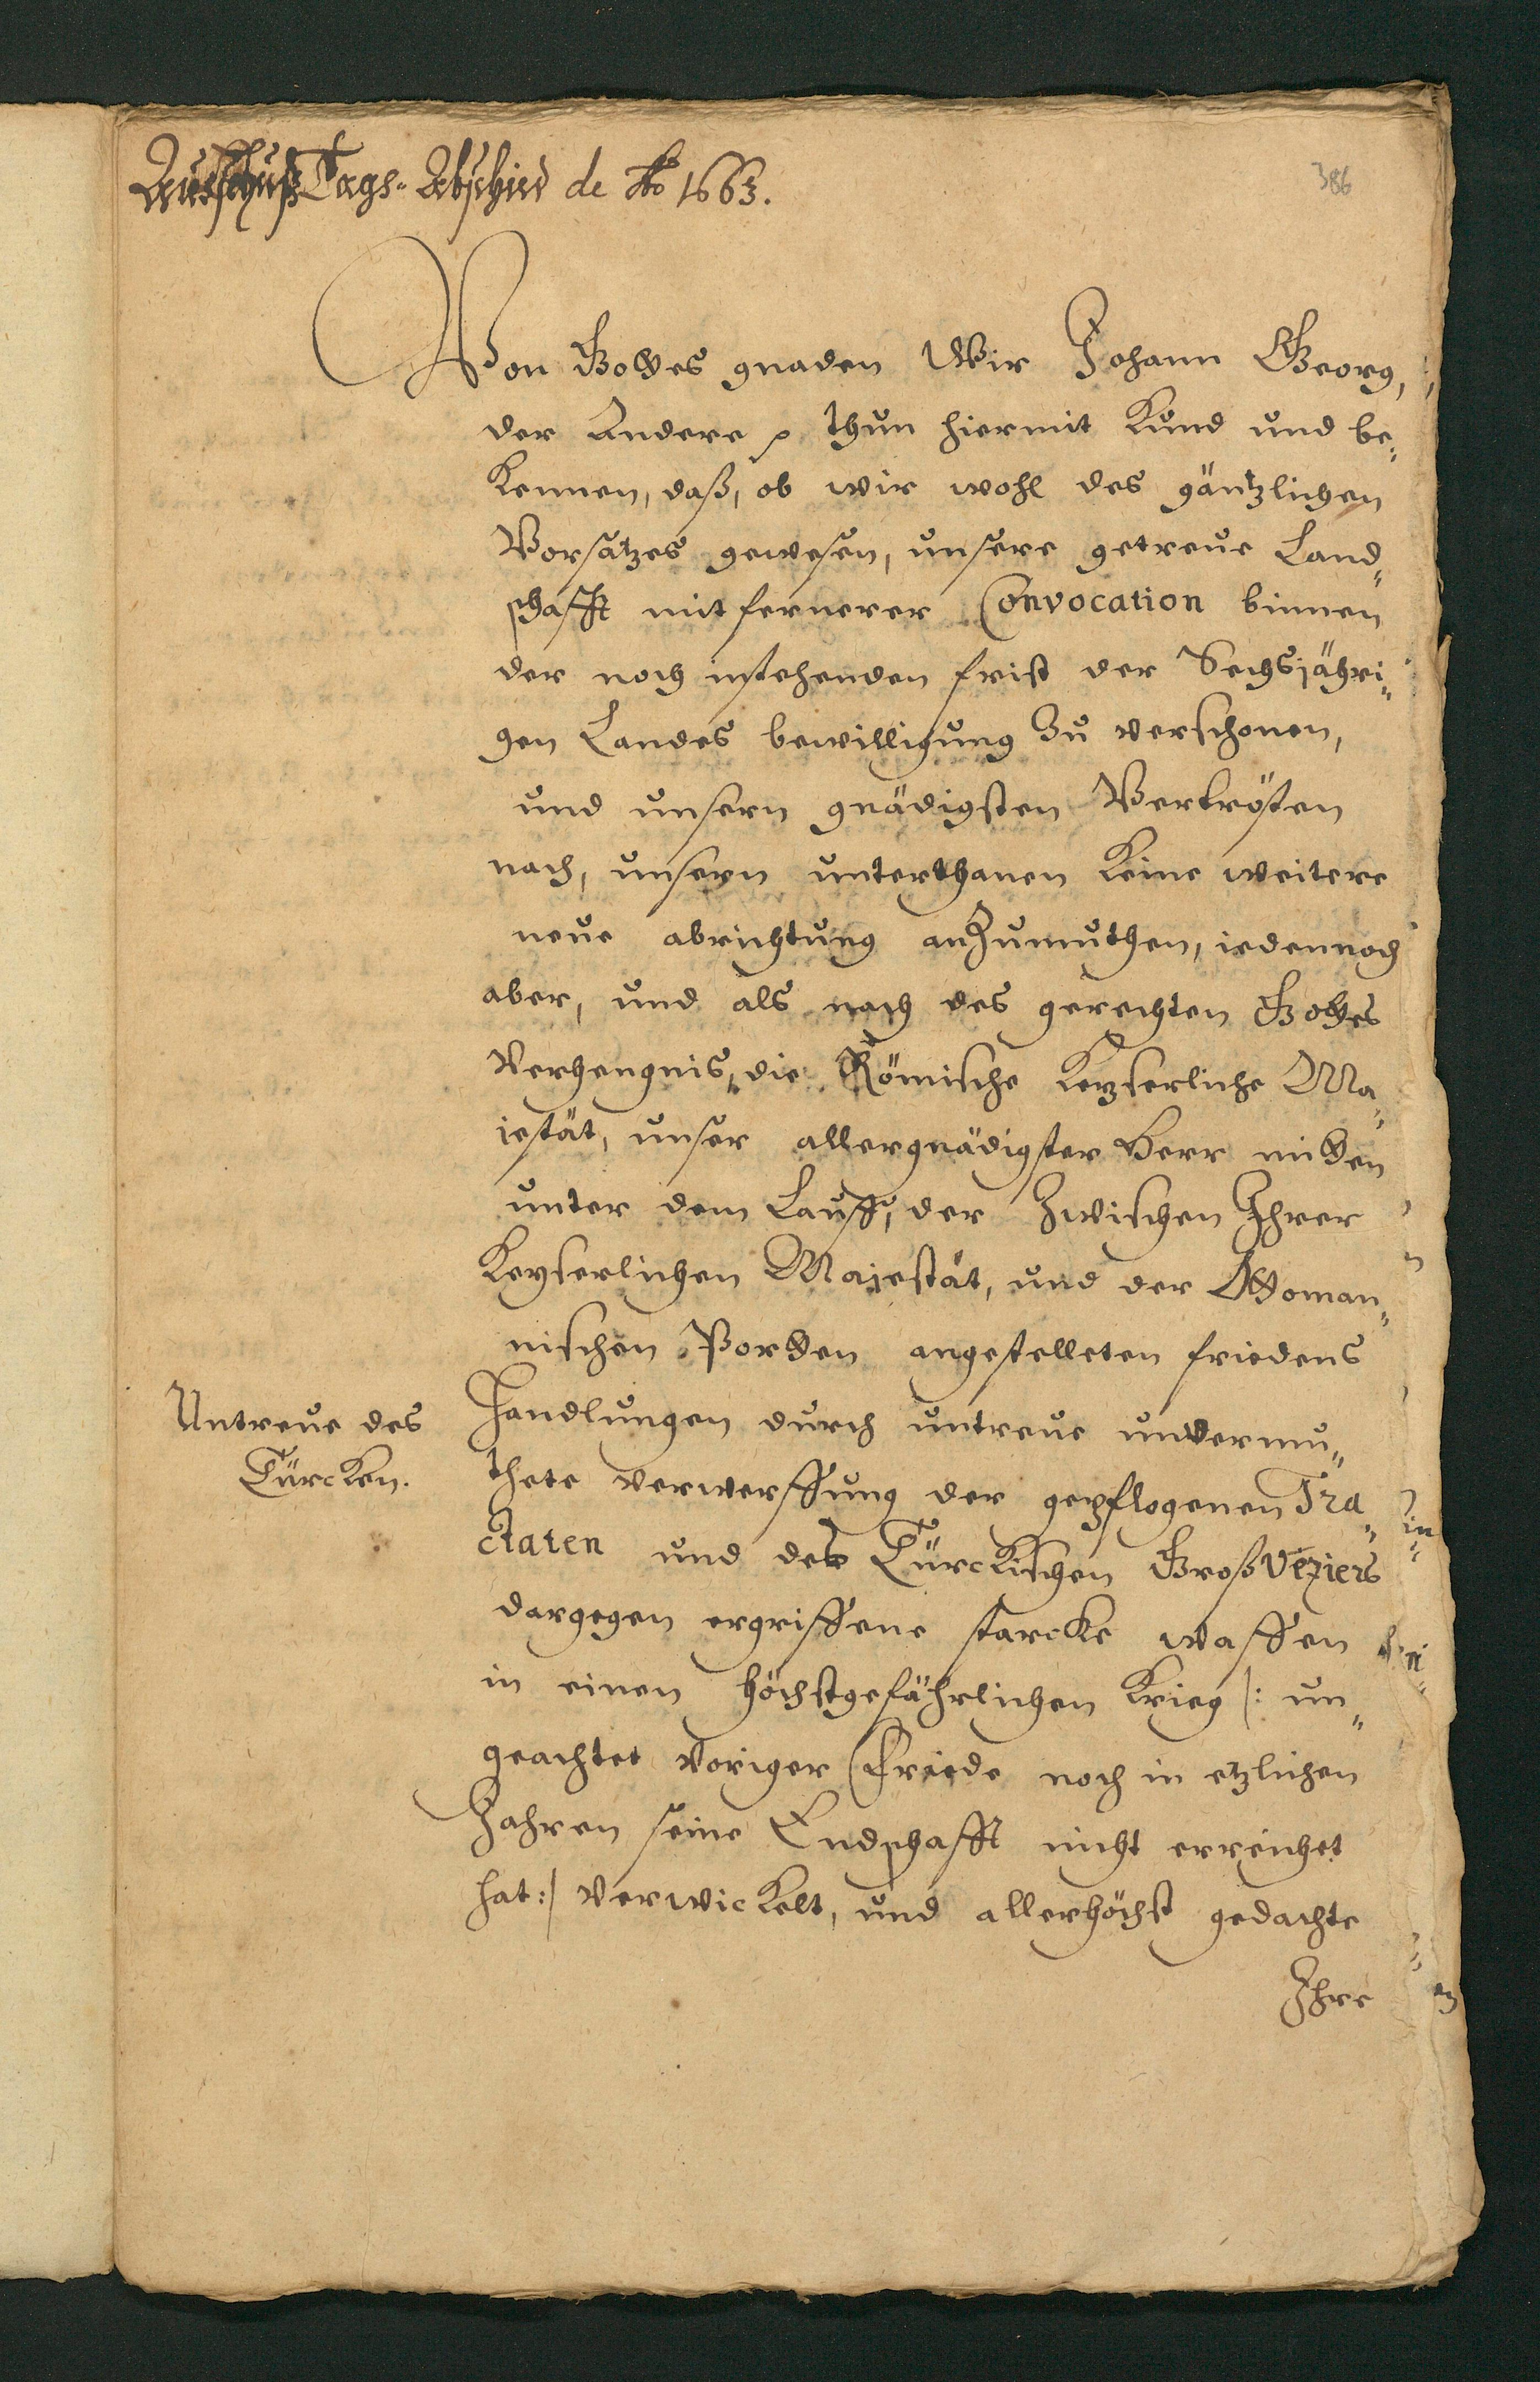 Ausschuß Tags-Abschied de Ao 1663.
386
Von Gottes gnaden Wir Johann Georg,
der Andere p thun hiermit Kund und be-
Kennen, daß, ob wir wohl des gäntzlichen
Vorsatzes gewesen, unsere getreue Land-
schafft mit fernerer Convocation binnen
der noch instehenden frist der Sechsjähri-
gen Landes bewilligung Zu verschonen,
und unsern gnädigsten Vertrösten
nach, unsern unterthanen Keine weitere
neue abrichtung anZumuthen, iedennoch
aber, und als nach des gerechten Gottes
Verhengnis, die Römische Keyserliche Ma-
iestät, unser allergnädigster Herr mitten
unter dem Lauff, der Zwischen Ihrer
Keyserlichen Majestät, und der Ottoman-
nischen Porten angestelleten friedens
Untreue des
Türcken.
Handlungen durch untreue unvermu-
thete verwerffung der gepflogenen Tra-
ctaten und des Türckischen Groß Veziers
dargegen ergriffene starcke waffen
in einen höchstgefährlichen Krieg /: un-
geachtet voriger Friede noch in etzlichen
Jahren seine Endschafft nicht erreichet
hat :/ verwickelt, und allerhöchst gedachte
Ihre